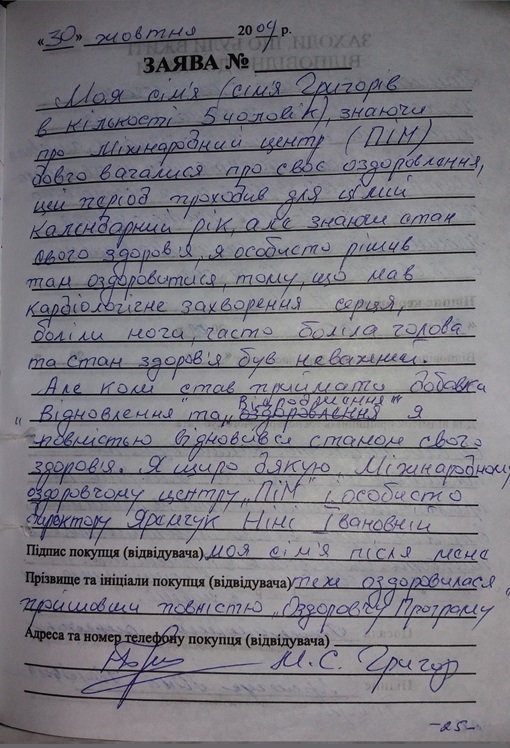 «30» жовтня 2009 р.
ЗАЯВА №
Моя сім'я (сім'я Григорів
в кількості 5 чоловік), знаючи
про Міжнародний центр (ПІМ)
довго вагалися про своє оздоровлення,
цей період проходив для цілий
календарний рік, але знаючи стан
свого здоров'я, я особисто рішив
там оздоровитися, тому, що мав
кардіологічне захворення серця,
боліли нога, часто боліла голова
та стан здоров'я був неважний.
Але коли став приймати добавки
Віддобрішання"
„Відновлення" та „оздоровлення я
повністю відновився станом свого
здоровія. Я щиро дякую Міжнародному
оздоровчому центру „ПІМ" і особисто
директору Яремчук Ніні Івановній
Підпис покупця (відвідувача) моя сім'я після мене
Прізвище та ініціали покупця (відвідувача) теж оздоровилася
прийшовши повністю „Оздоровчу Програму"
Адреса та номер телефону покупця (відвідувача)
М. С. Григор
-25-